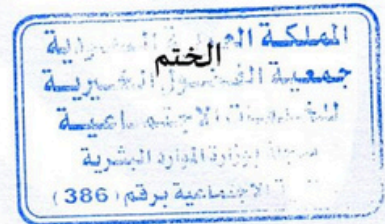 المملكة العربية السعودية
الختم
جمعية الفضول الخيرية
للخدمات الاجتماعية
مسجلة بوزارة الموارد البشرية
الاجتماعية برقم ( 386 )